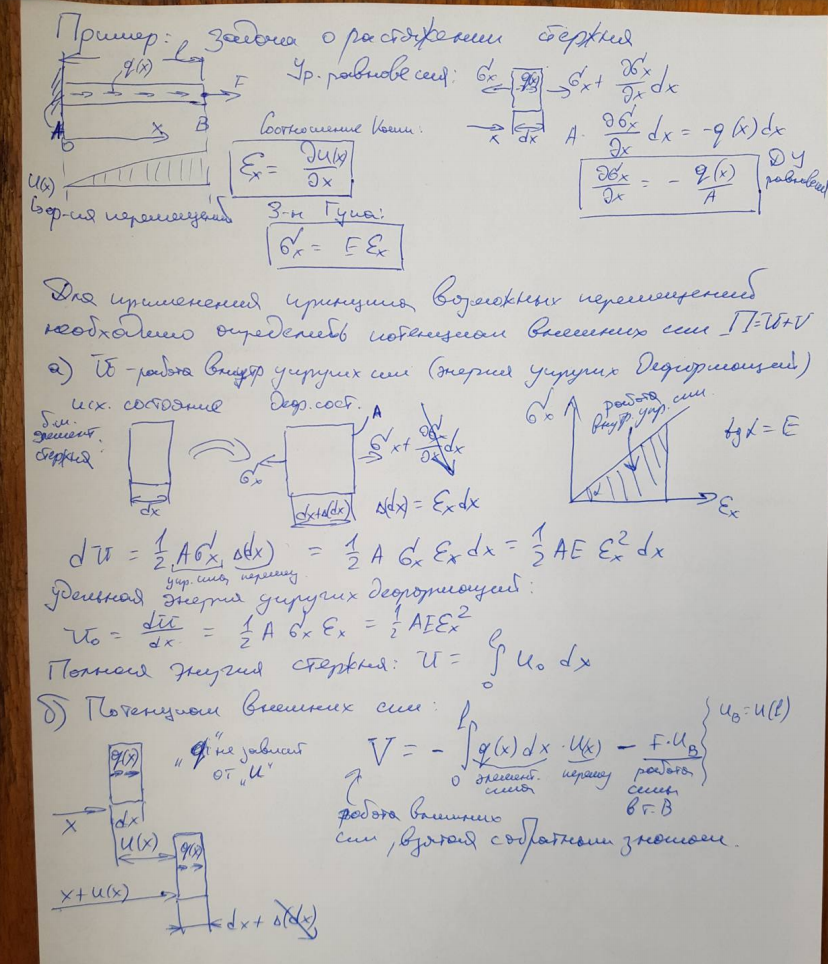 Пример: задача о растяжении стержня
l
q(x)
F
A
B
0
x
U(x)
Ур. равновесия:
σx
q(x)
σx + ∂σx/∂x dx
x
dx
A · ∂σx/∂x dx = -q(x)dx
Соотношение Коши:
εx = ∂U(x)/∂x
∂σx/∂x = - q(x)/A
ДУ
равновесия
перемещений
З-н Гука:
σx = E εx
Для применения принципа возможных перемещений
необходимо определить потенциал внешних сил П=U+V
а) U - работа внутр упругих сил (энергия упругих деформаций)
исх. состояние
деф. сост.
б.м.
элемент.
стержня:
dx
A
σx
σx + ∂σx/∂x dx
dx+Δ(dx)
Δ(dx) = εx dx
σx
работа
внутр. упр. сил
tg α = E
α
εx
dU = 1/2 A σx Δ(dx) = 1/2 A σx εx dx = 1/2 AE εx² dx
упр. сила перемещ
удельная энергия упругих деформаций:
U₀ = dU/dx = 1/2 A σx εx = 1/2 AEεx²
Полная энергия стержня: U = ∫₀ˡ U₀ dx
б) Потенциал внешних сил:
q(x)
"q" не зависит
от "u"
V = - ∫₀ˡ q(x) dx · U(x) - F·U_B
U_B = U(l)
элемент.
сила
перемещ
работа
силы
в т. B
x
dx
U(x)
q(x)
работа внешних
сил, взятая с обратным знаком.
x+U(x)
dx + Δ(dx)